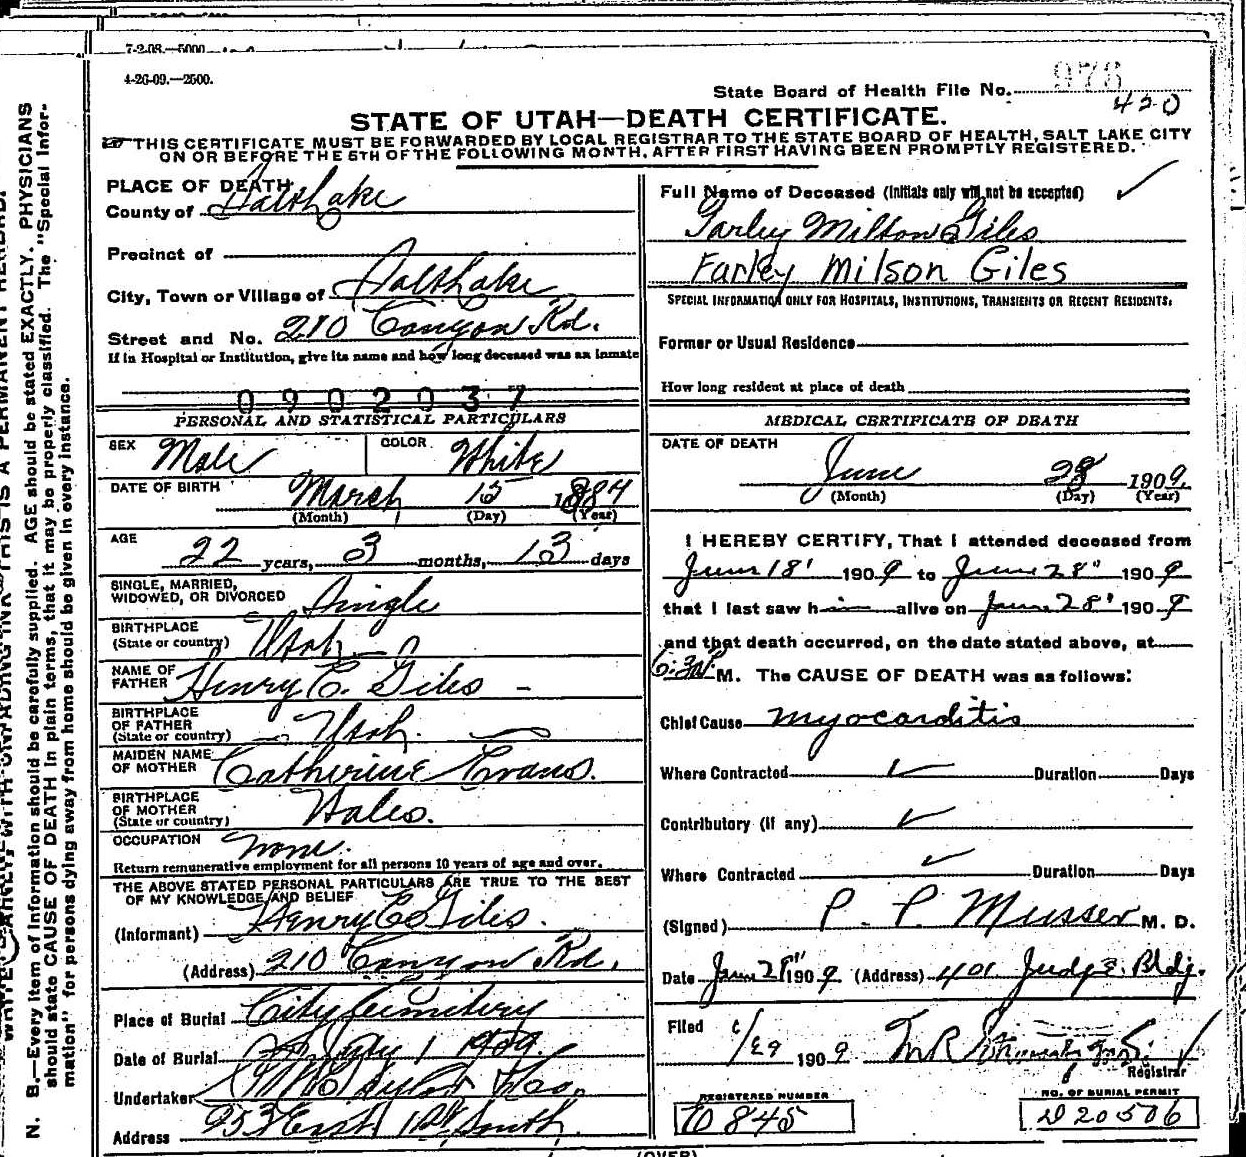 7-2-08.—5000
4-26-09.—2500.
State Board of Health File No. 976
420
STATE OF UTAH—DEATH CERTIFICATE.
THIS CERTIFICATE MUST BE FORWARDED BY LOCAL REGISTRAR TO THE STATE BOARD OF HEALTH, SALT LAKE CITY
ON OR BEFORE THE 5TH OF THE FOLLOWING MONTH, AFTER FIRST HAVING BEEN PROMPTLY REGISTERED.
PLACE OF DEATH
County of Salt Lake
Precinct of
City, Town or Village of Salt Lake
Street and No. 210 Canyon Rd.
If in Hospital or Institution, give its name and how long deceased was an inmate
0902037
PERSONAL AND STATISTICAL PARTICULARS
SEX Male COLOR White
DATE OF BIRTH March 15 1884
(Month) (Day) (Year)
AGE
22 years, 3 months, 13 days
SINGLE, MARRIED,
WIDOWED, OR DIVORCED Single
BIRTHPLACE
(State or country) Utah
NAME OF
FATHER Henry E. Giles
BIRTHPLACE
OF FATHER
(State or country) Utah.
MAIDEN NAME
OF MOTHER Catherine Evans.
BIRTHPLACE
OF MOTHER
(State or country) Wales.
OCCUPATION None.
Return remunerative employment for all persons 10 years of age and over.
THE ABOVE STATED PERSONAL PARTICULARS ARE TRUE TO THE BEST
OF MY KNOWLEDGE AND BELIEF
(Informant) Henry E Giles.
(Address) 210 Canyon Rd.
Place of Burial City Cemetery
Date of Burial July 1 1909.
Undertaker
Address 253 East 1st South.
Full Name of Deceased (Initials only will not be accepted)
Farley Milton Giles
Farley Milson Giles
SPECIAL INFORMATION ONLY FOR HOSPITALS, INSTITUTIONS, TRANSIENTS OR RECENT RESIDENTS.
Former or Usual Residence
How long resident at place of death
MEDICAL CERTIFICATE OF DEATH
DATE OF DEATH
June 28 1909.
(Month) (Day) (Year)
I HEREBY CERTIFY, That I attended deceased from
June 18" 1909 to June 28" 1909
that I last saw him alive on June 28" 1909
and that death occurred, on the date stated above, at
M. The CAUSE OF DEATH was as follows:
Chief Cause Myocarditis
Where Contracted Duration Days
Contributory (if any)
Where Contracted Duration Days
(Signed) P. P. Musser M. D.
Date June 28" 1909 (Address) 401 Judge Bldg.
Filed 6/29 1909
Registrar
REGISTERED NUMBER
D845
NO. OF BURIAL PERMIT
D20506
(OVER)
N. B.—Every item of information should be carefully supplied. AGE should be stated EXACTLY. PHYSICIANS
should state CAUSE OF DEATH in plain terms, that it may be properly classified. The "Special Infor-
mation" for persons dying away from home should be given in every instance.